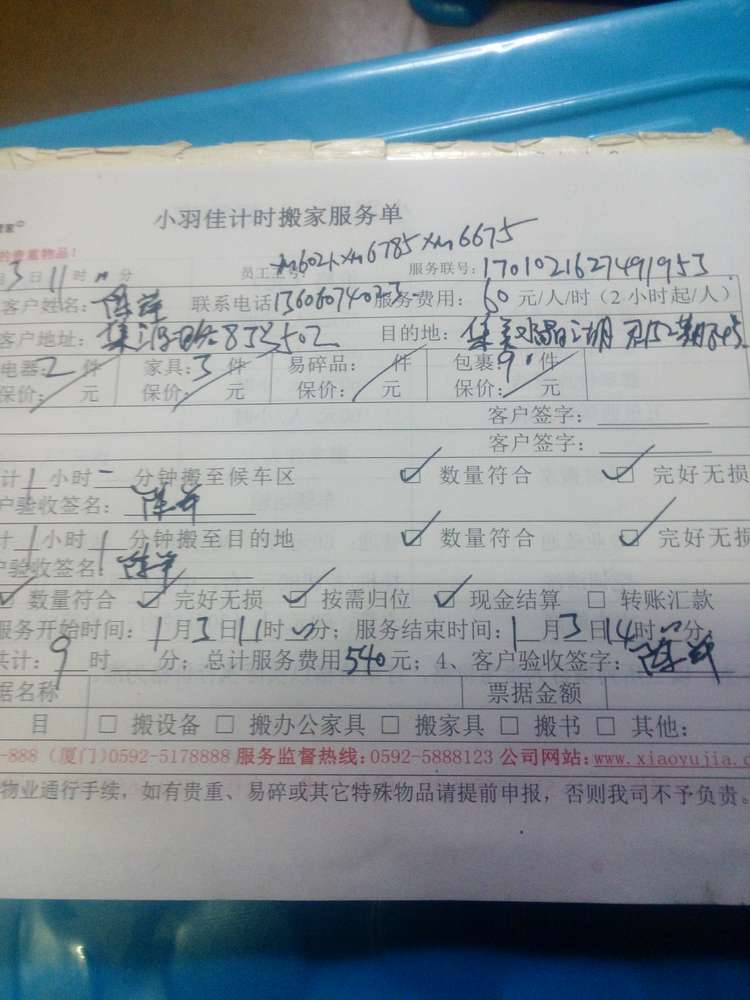 小羽佳计时搬家服务单
的贵重物品！
xm6785xm6675
月3日11时 分 员工工号： 服务联号：1701021627491953
客户姓名： 联系电话 服务费用：60元/人/时（2小时起/人）
客户地址： 目的地：集美水晶湖
电器：2件 家具：3件 易碎品： 件 包裹：9件
保价： 元 保价： 元 保价： 元 保价： 元
客户签字：
客户签字：
计1小时 分钟搬至候车区 ☑ 数量符合 ☑ 完好无损
户验收签名：
计1小时1分钟搬至目的地 ☑ 数量符合 ☑ 完好无损
户验收签名：
☑ 数量符合 ☑ 完好无损 ☑ 按需归位 ☑ 现金结算 □ 转账汇款
服务开始时间：1月3日11时 分；服务结束时间：1月3日14时 分，
共计：9时 分；总计服务费用540元；4、客户验收签字：
据名称 票据金额
目 □ 搬设备 □ 搬办公家具 □ 搬家具 □ 搬书 □ 其他：
-888 (厦门)0592-5178888 服务监督热线：0592-5888123 公司网站：www.xiaoyujia.c
物业通行手续，如有贵重、易碎或其它特殊物品请提前申报，否则我司不予负责。